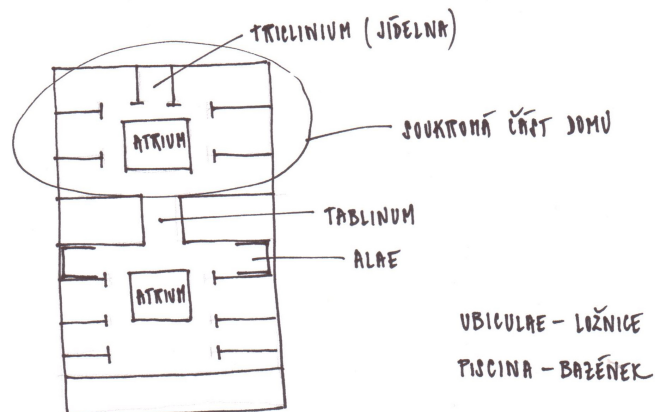 TRICLINIUM (JÍDELNA)
ATRIUM
SOUKROMÁ ČÁST DOMU
TABLINUM
ALAE
ATRIUM
UBICULAE - LOŽNICE
PISCINA - BAZÉNEK